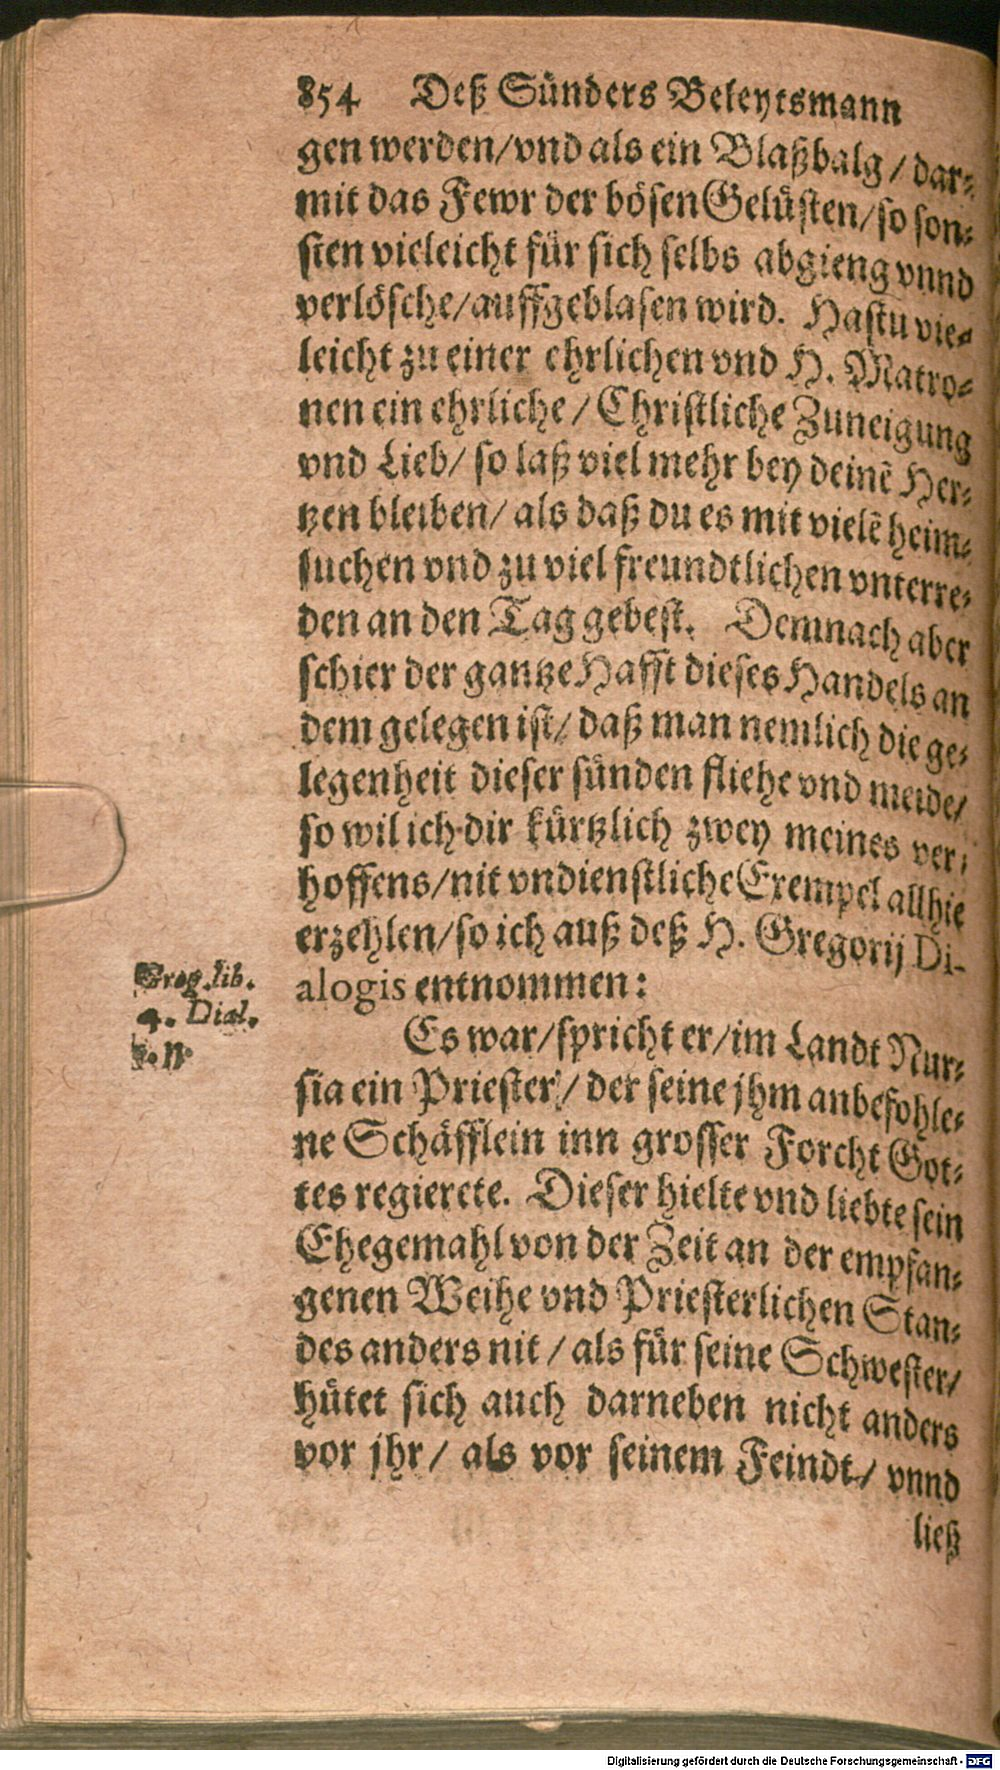 854 Deß Sünders Beleytsmann
gen werden/vnd als ein Blaßbalg/dar⸗
mit das Fewr der bösen Gelüsten/so son⸗
sten vieleicht für sich selbs abgieng vnnd
verlösche/auffgeblasen wird. Hastu vie⸗
leicht zu einer ehrlichen vnd H. Matro⸗
nen ein ehrliche/Christliche Zuneigung
vnd Lieb/so laß viel mehr bey deinẽ Her⸗
tzen bleiben/als daß du es mit vielẽ heim⸗
suchen vnd zu viel freundtlichen vnterre⸗
den an den Tag gebest. Demnach aber
schier der gantze Hafft dieses Handels an
dem gelegen ist/daß man nemlich die ge⸗
legenheit dieser sünden fliehe vnd meide/
so wil ich dir kürtzlich zwey meines ver⸗
hoffens/nit vndienstliche Exempel allhie
erzehlen/so ich auß deß H. Gregorij Di-
alogis entnommen:
Greg. lib.
4. Dial.
Es war/spricht er/im Landt Nur⸗
sia ein Priester/der seine jhm anbefohle⸗
ne Schäfflein inn grosser Forcht Got⸗
tes regierete. Dieser hielte vnd liebte sein
Ehegemahl von der Zeit an der empfan⸗
genen Weihe vnd Priesterlichen Stan⸗
des anders nit/als für seine Schwester/
hütet sich auch darneben nicht anders
vor jhr/als vor seinem Feindt/vnnd
ließ
Digitalisierung gefördert durch die Deutsche Forschungsgemeinschaft - DFG